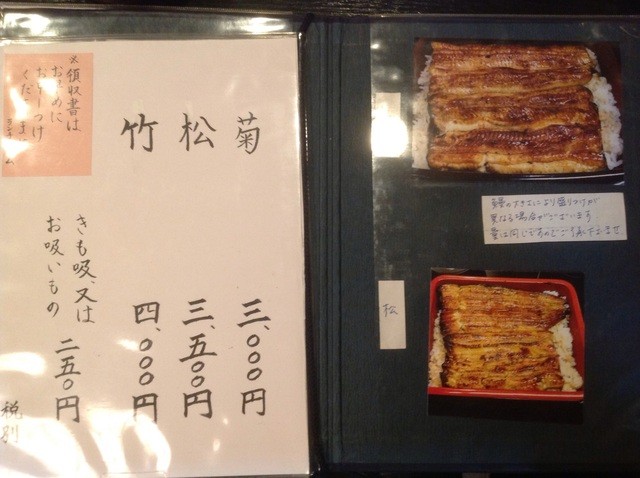 菊 三、〇〇〇円
松 三、五〇〇円
竹 四、〇〇〇円
きも吸、又は
お吸いもの 二五〇円
税別
※領収書は
お早めに
鰻の大きさにより盛りつけが
異なる場合がございます
量は同じですのでご了承下さいませ
松